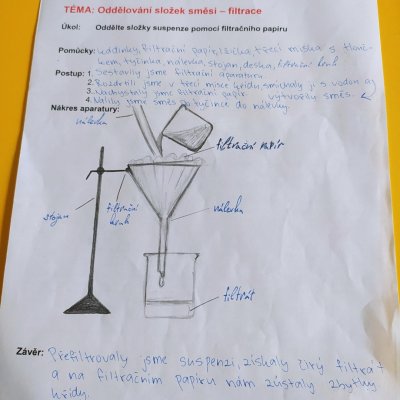 TÉMA: Oddělování složek směsí – filtrace
Úkol: Oddělte složky suspenze pomocí filtračního papíru
Pomůcky: kádinky, filtrační papír, lžička, třecí miska s tlouč-
kem, tyčinka, nálevka, stojan, deska, filtrační kruh
Postup: 1. Sestavily jsme filtrační aparaturu.
2. Rozdrtili jsme v třecí misce křídu, smíchaly ji s vodou a
vytvořily směs.
3. Nachystaly jsme filtrační papír.
4. Nalily jsme směs po tyčince do nálevky.
Nákres aparatury:
filtrační papír
stojan
filtrační kruh
nálevka
filtrát
Závěr: Přefiltrovaly jsme suspenzi, získaly čirý filtrát
a na filtračním papíru nám zůstaly zbytky
křídy.